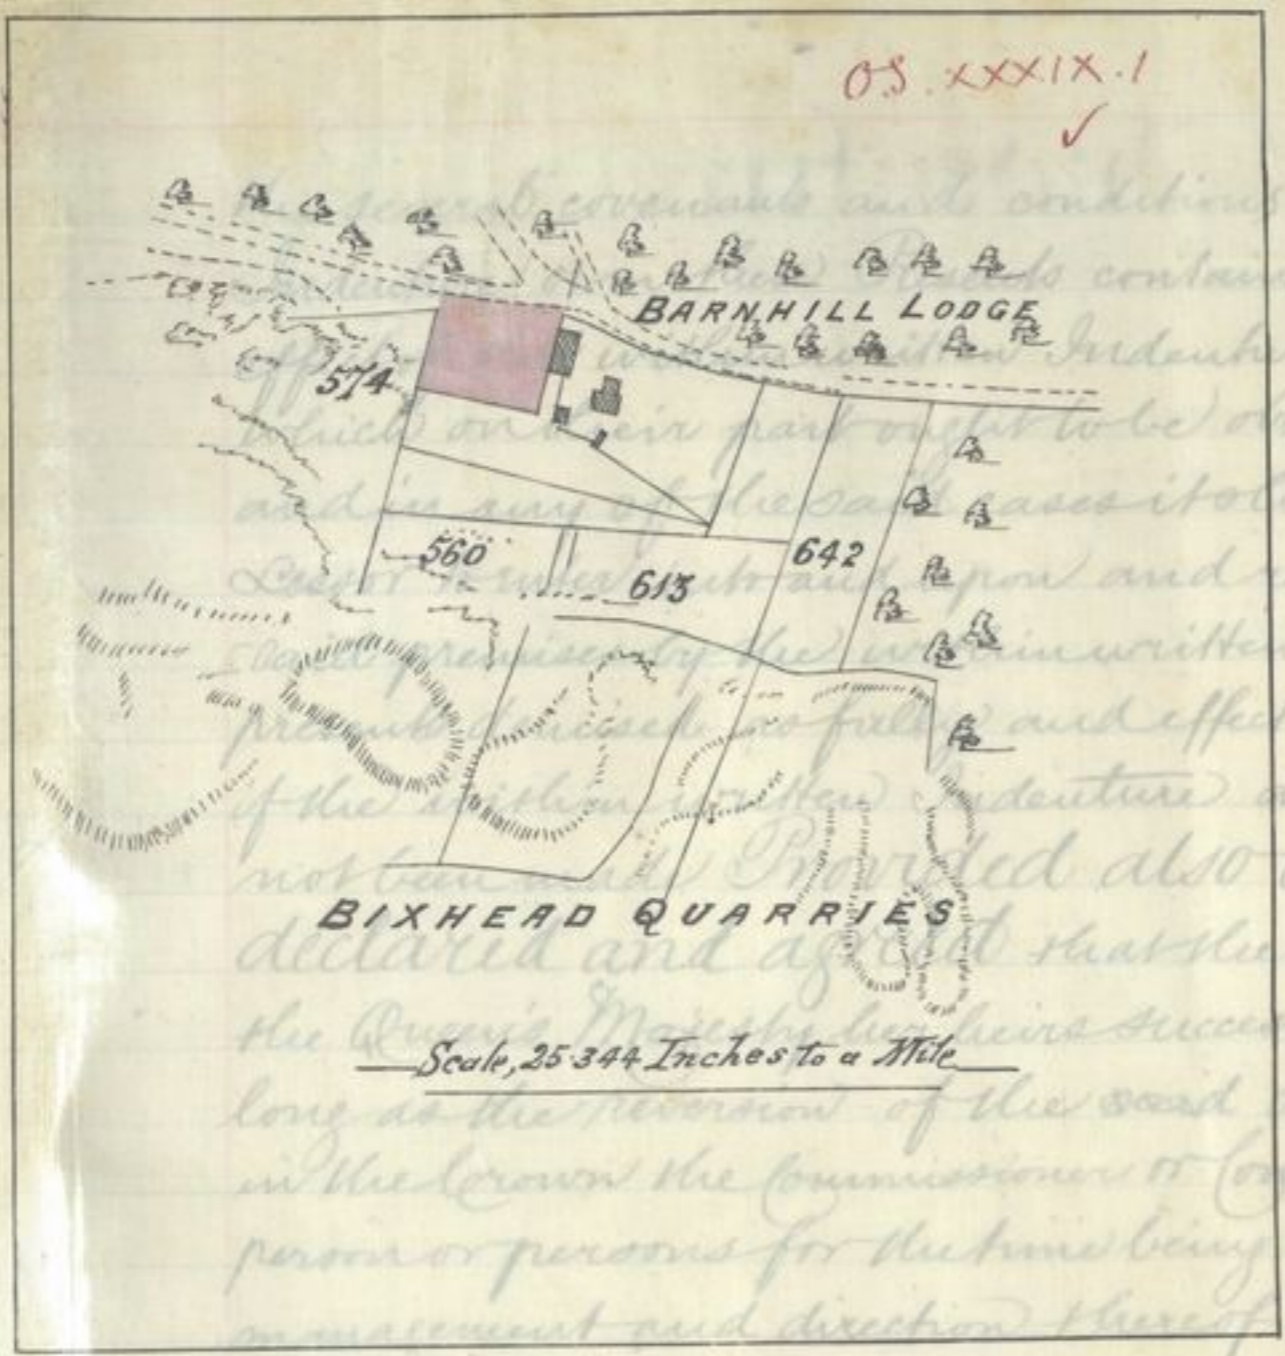 O.S. XXXIX.1
BARNHILL LODGE
574
560
613
642
BIXHEAD QUARRIES
Scale, 25.344 Inches to a Mile
covenants and conditions
contain
Indentu
which on their part ought to be o
and in any of the said cases it s
Lessor upon and
premises by the within written
demised as fully and effec
of the within written Indenture
not been Provided also
declared and agreed that the
the Queen's Majesty her heirs succes
long as the reversion of the said
in the Crown the Commissioner or Co
person or persons for the time being
management and direction thereof